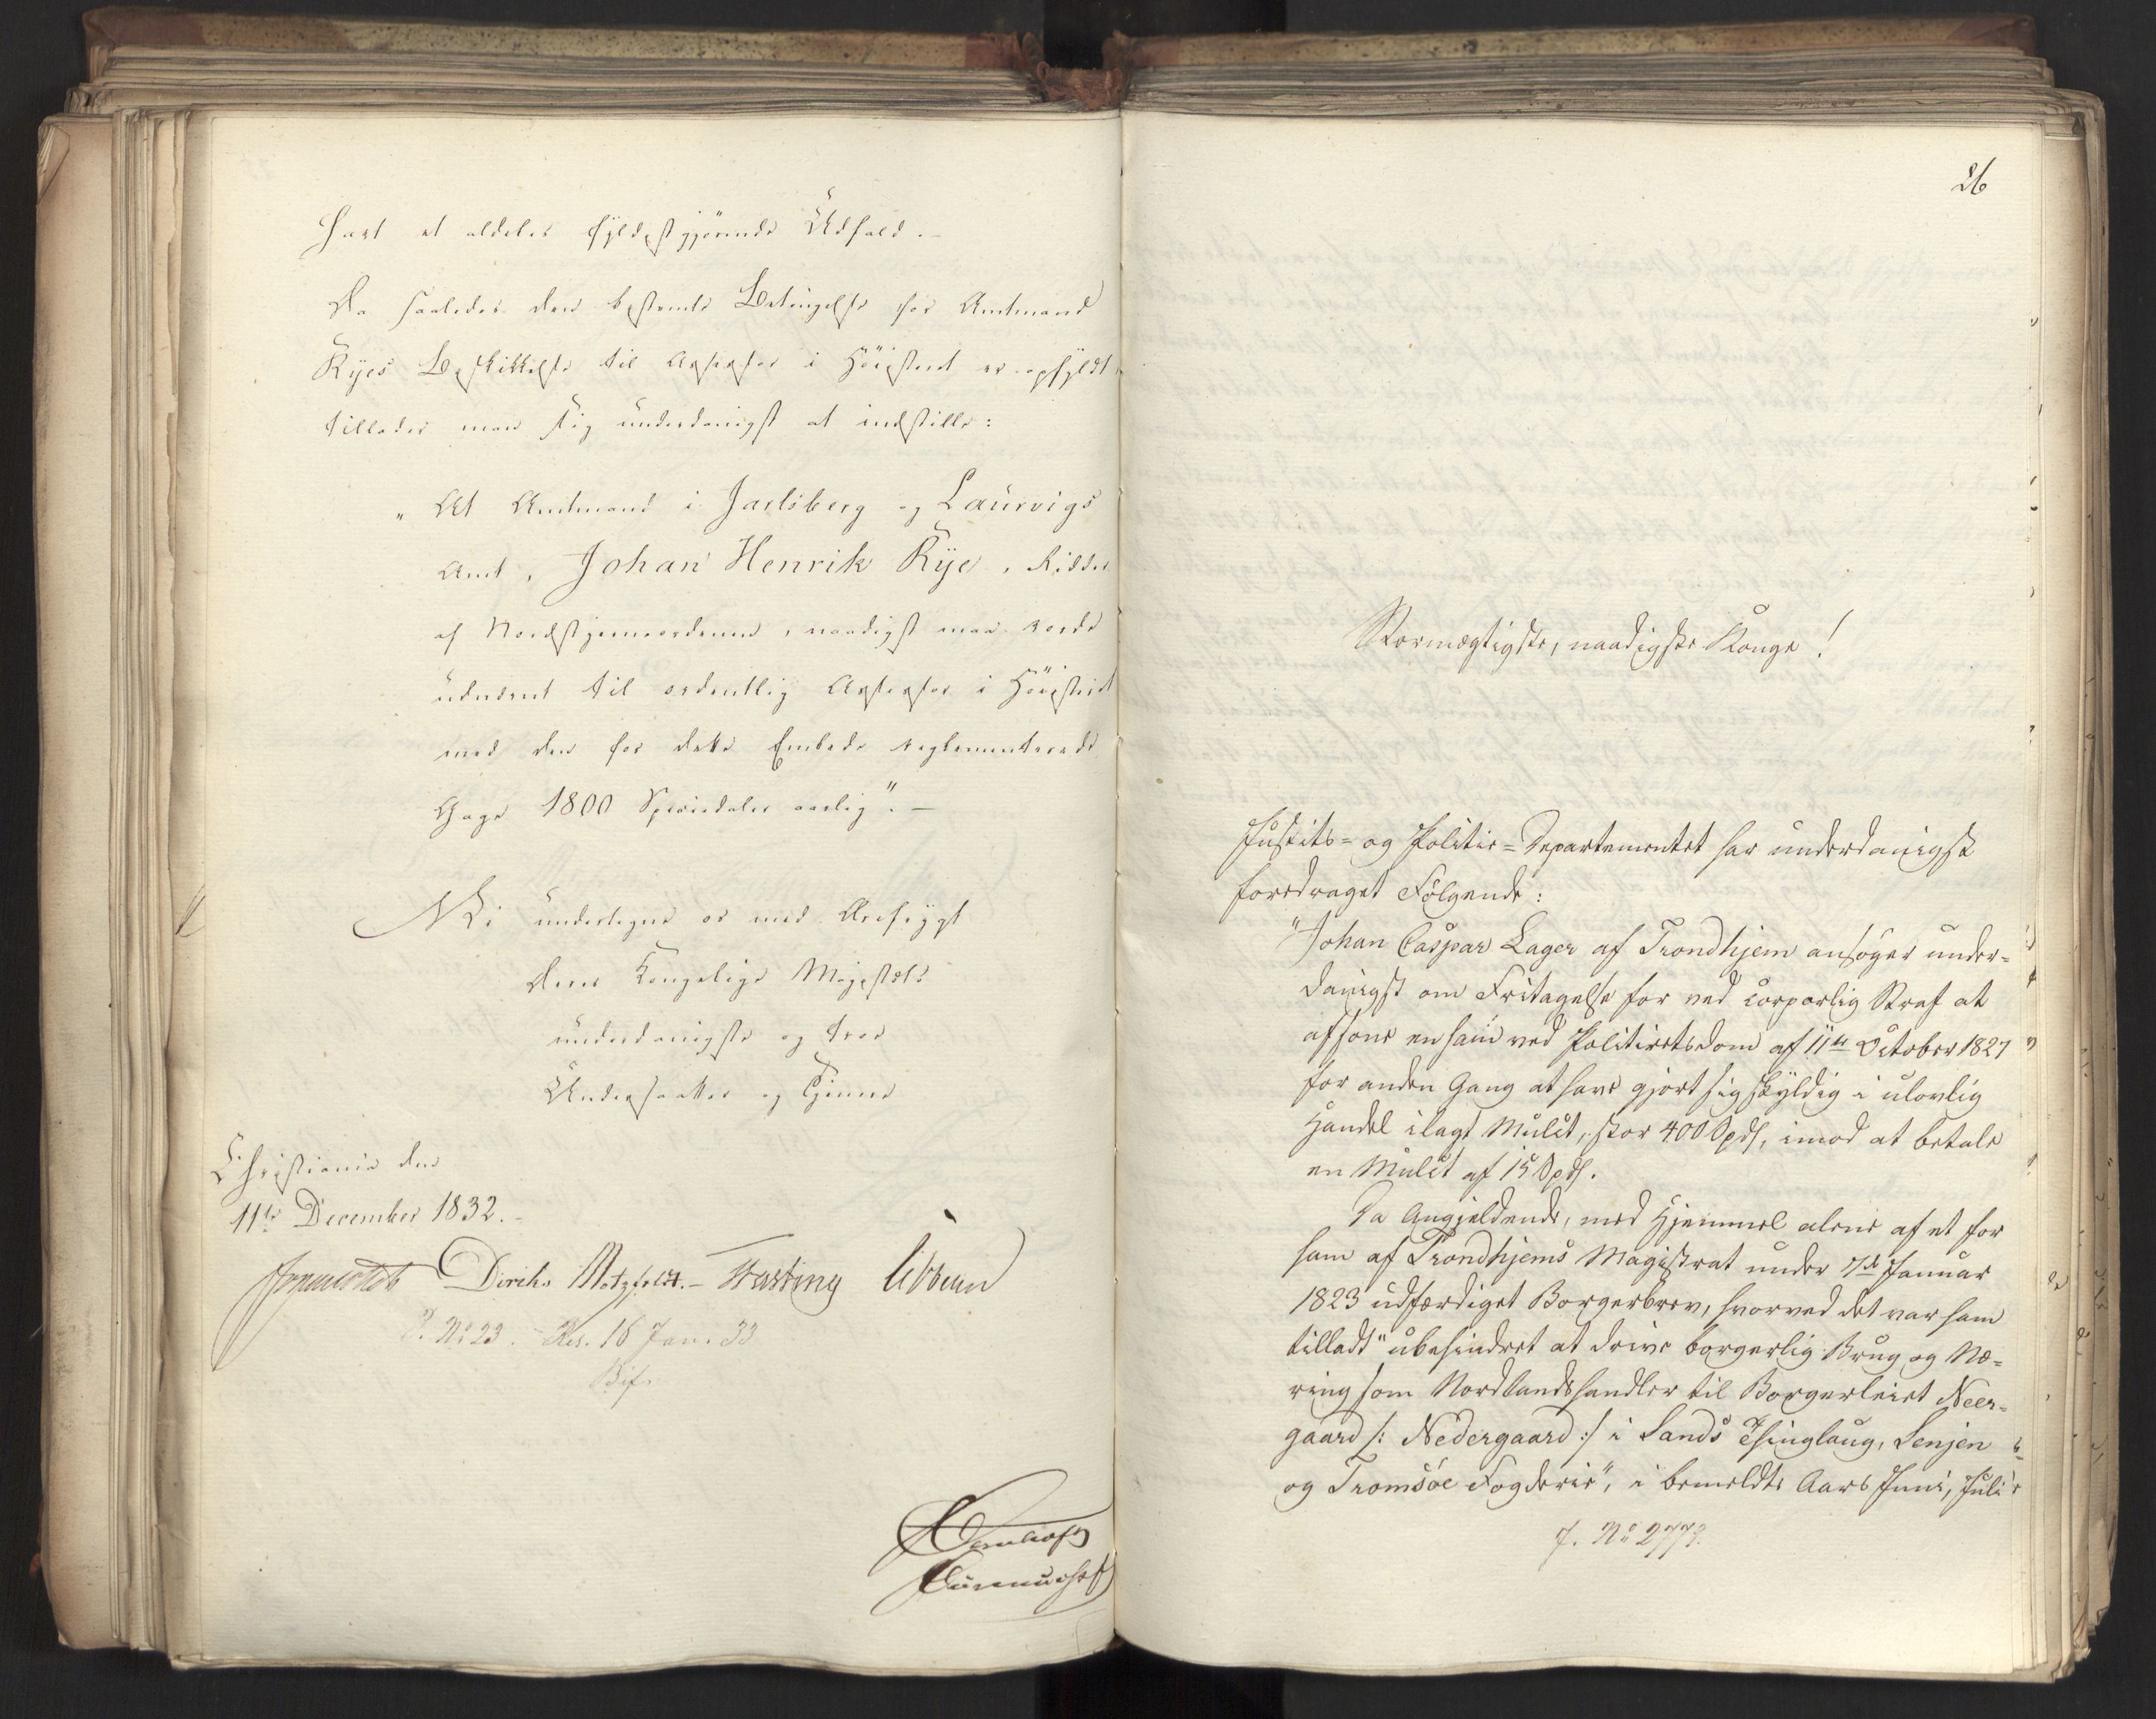 havt et aldeles fyldestgjörende Udfald.-
Da saaledes den bestemte Betingelse for Amtmand
Ryes Beskikkelse til Assessor i Höiesteret er opfyldt,
tillader man sig underdanigst at indstille:
"At Amtmand i Jarlsberg og Laurvigs
Amt, Johan Henrik Rye, Ridder
af Nordstjerneordenen, naadigst maa vorde
udnævnt til ordentlig Assessor i Höiesteret
med den for dette Embede reglementerede
Gage 1800 Speciedaler aarlig".-
Vi undertegne os med Ærefrygt
Deres Kongelige Majestæts
underdanigste og troe
Undersaatter og Tjenere
Christiania den
11te December 1832.-
Diriks Motzfeldt.- Hasting Vibe
J. No 23. Res. 16 Jan. 33
26
Stormægtigste, naadigste Konge!
Justits- og Politie-Departementet har underdanigst
foredraget Fölgende:
"Johan Caspar Lager af Trondhjem ansöger under-
danigst om Fritagelse for ved corporlig Straf at
afsone en ham ved Politieretsdom af 11te October 1827
for anden Gang at have gjort sig skyldig i ulovlig
Handel ilagt Mulct, stor 400 Spd, imod at betale
en Mulct af 15 Spd.
Da Angjeldende, med Hjemmel alene af et for
ham af Trondhjems Magistrat under 7de Januar
1823 udfærdiget Borgerbrev, hvorved det var ham
tilladt "ubehindret at drive borgerlig Brug og Næ-
ring som Nordlandshandler til Borgerleiet Neer-
gaard /: Nedergaard :/ i Sands Thinglaug, Senjen
og Tromsöe Fogderie", i bemeldte Aars Juni, Juli
J. No 2779.